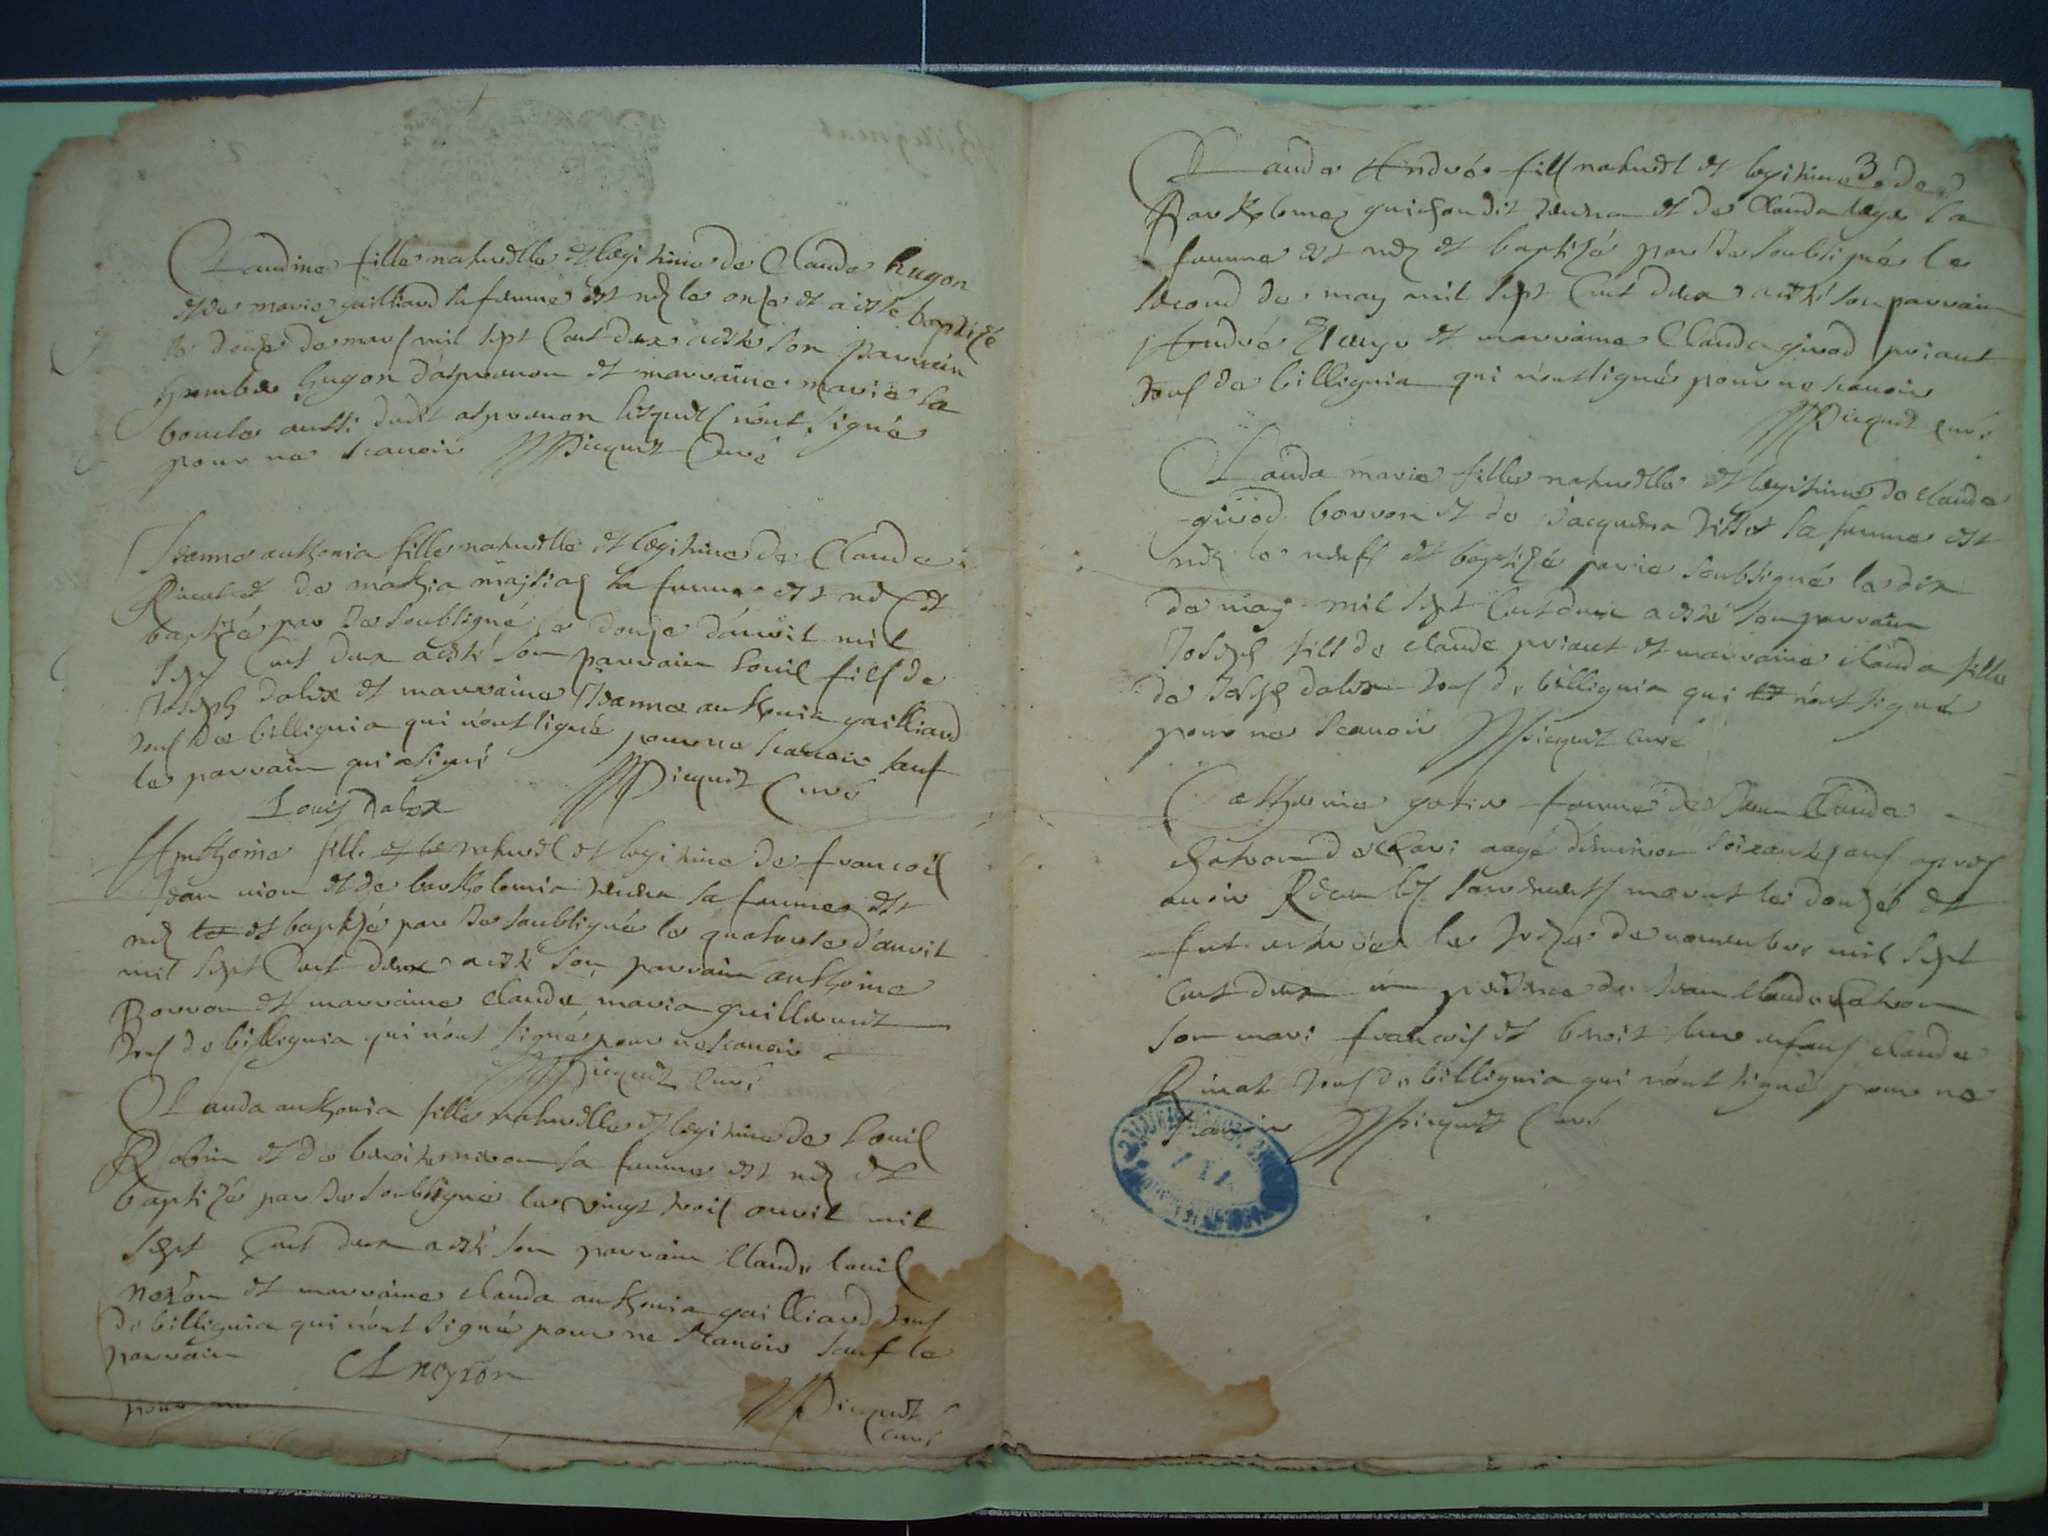 Claudine fille naturelle et legitime de Claude hugon
et de marie guilliard sa femme est née le onze et a esté baptizé
le douze de mars mil sept Cent deux a esté son parrain
humber hugon d'aspremon et marraine marie la
boucle aussi dudit aspremon lesquels n'ont signé
pour ne scavoir Picquet Curé
Jeanne anthonia fille naturelle et legitime de Claude
Rinat et de mathia la femme est née et
baptizé par Je soubsigné le douze d'auvril mil
sept Cent deux a esté son parrain Louis fils de
Joseph dalox et marraine Jeanne anthonia gailliard
tous de billignia qui n'ont signé pour ne scavoir sauf
le parrain qui a signé Picquet Curé
Louis Dalox
Anthoina fille et le naturel et legitime de francois
Jean nion et de bartholomia sa femme est
née le et baptizé par Je soubsigné le quatorse d'auvril
mil sept Cent deux a esté son parrain anthoine
Borron et marraine claude maria guillermet
tous de billignia qui n'ont signé pour ne scavoir
Picquet Curé
Clauda anthonia fille naturelle et legitime de Louis
Robin et de benoite neron sa femme est née et
baptizé par Je soubsigné le vingt trois auvril mil
sept Cent deux a esté son parrain Claude louis
neron et marraine clauda anthonia gailliard tous
de billignia qui n'ont signé pour ne scavoir sauf le
parrain CL neyron
pour ne Picquet
curé
3
Claude André fils naturel et legitime de
Bartholome guichon dit et de Clauda sa
femme est née et baptizé par Je soubsigné le
second de may mil sept Cent deux a esté son parrain
André et marraine Clauda girod priant
tous de billignia qui n'ont signé pour ne scavoir
Picquet Curé
Clauda marie fille naturelle et legitime de claude
girod borron et de Jacquema sa femme est
née le neufs et baptizé par je soubsigné le dix
de may mil sept Cent deux a esté son parrain
Joseph fils de claude priant et marraine clauda fille
de Joseph dalox tous de billignia qui n'ont signé
pour ne scavoir Picquet Curé
Catherine femme de Jean Claude
chatron de aagé d'environ soixante ans apres
avoir Receu les sacrements mourut le douzé et
fut enterrée le treize de novembre mil sept
Cent deux en présence de Jean Claude Catron
son mari francois et benoit leur enfans claude
Rinat tous de billignia qui n'ont signé pour ne
scavoir Picquet Curé